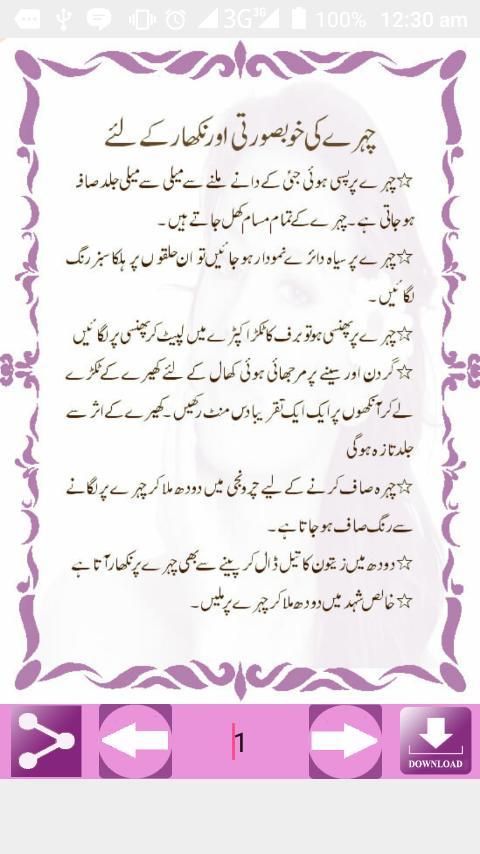 3G 3G 100% 12:30 am
چہرے کی خوبصورتی اور نکھار کے لئے
☆چہرے پر پسی ہوئی جئی کے دانے ملنے سے میلی سے میلی جلد صاف
ہوجاتی ہے۔ چہرے کے تمام مسام کھل جاتے ہیں۔
☆چہرے پر سیاہ دائرے نمودار ہو جائیں تو ان حلقوں پر ہلکا سبز رنگ
لگائیں۔
☆چہرے پر پھنسی ہو تو برف کا ٹکڑا کپڑے میں لپیٹ کر پھنسی پر لگائیں
☆گردن اور سینے پر مرجھائی ہوئی کھال کے لئے کھیرے کے ٹکڑے
لے کر آنکھوں پر ایک ایک تقریبا دس منٹ رکھیں۔ کھیرے کے اثر سے
جلد تازہ ہوگی
☆چہرہ صاف کرنے کے لیے چرونجی میں دودھ ملا کر چہرے پر لگانے
سے رنگ صاف ہو جاتا ہے۔
☆دودھ میں زیتون کا تیل ڈال کر پینے سے بھی چہرے پر نکھار آتا ہے
☆خالص شہد میں دودھ ملا کر چہرے پر ملیں۔
1
DOWNLOAD